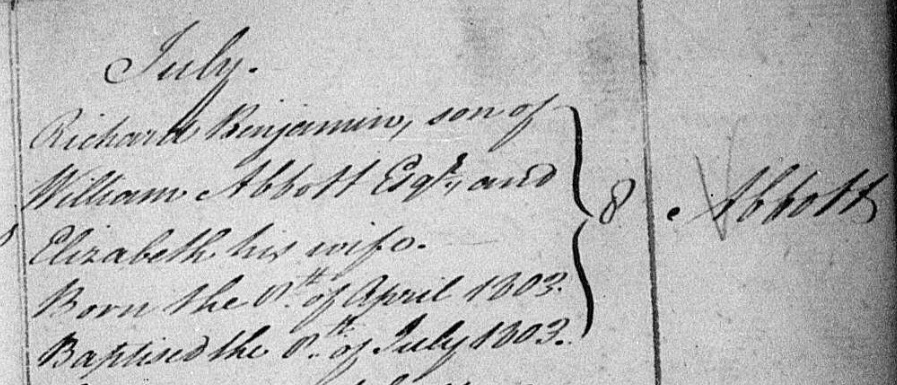 July.
Richard Benjamin, son of
William Abbott Esqr., and
Elizabeth his wife.
Born the 8th. of April 1803.
Baptised the 8th. of July 1803.
8
Abbott